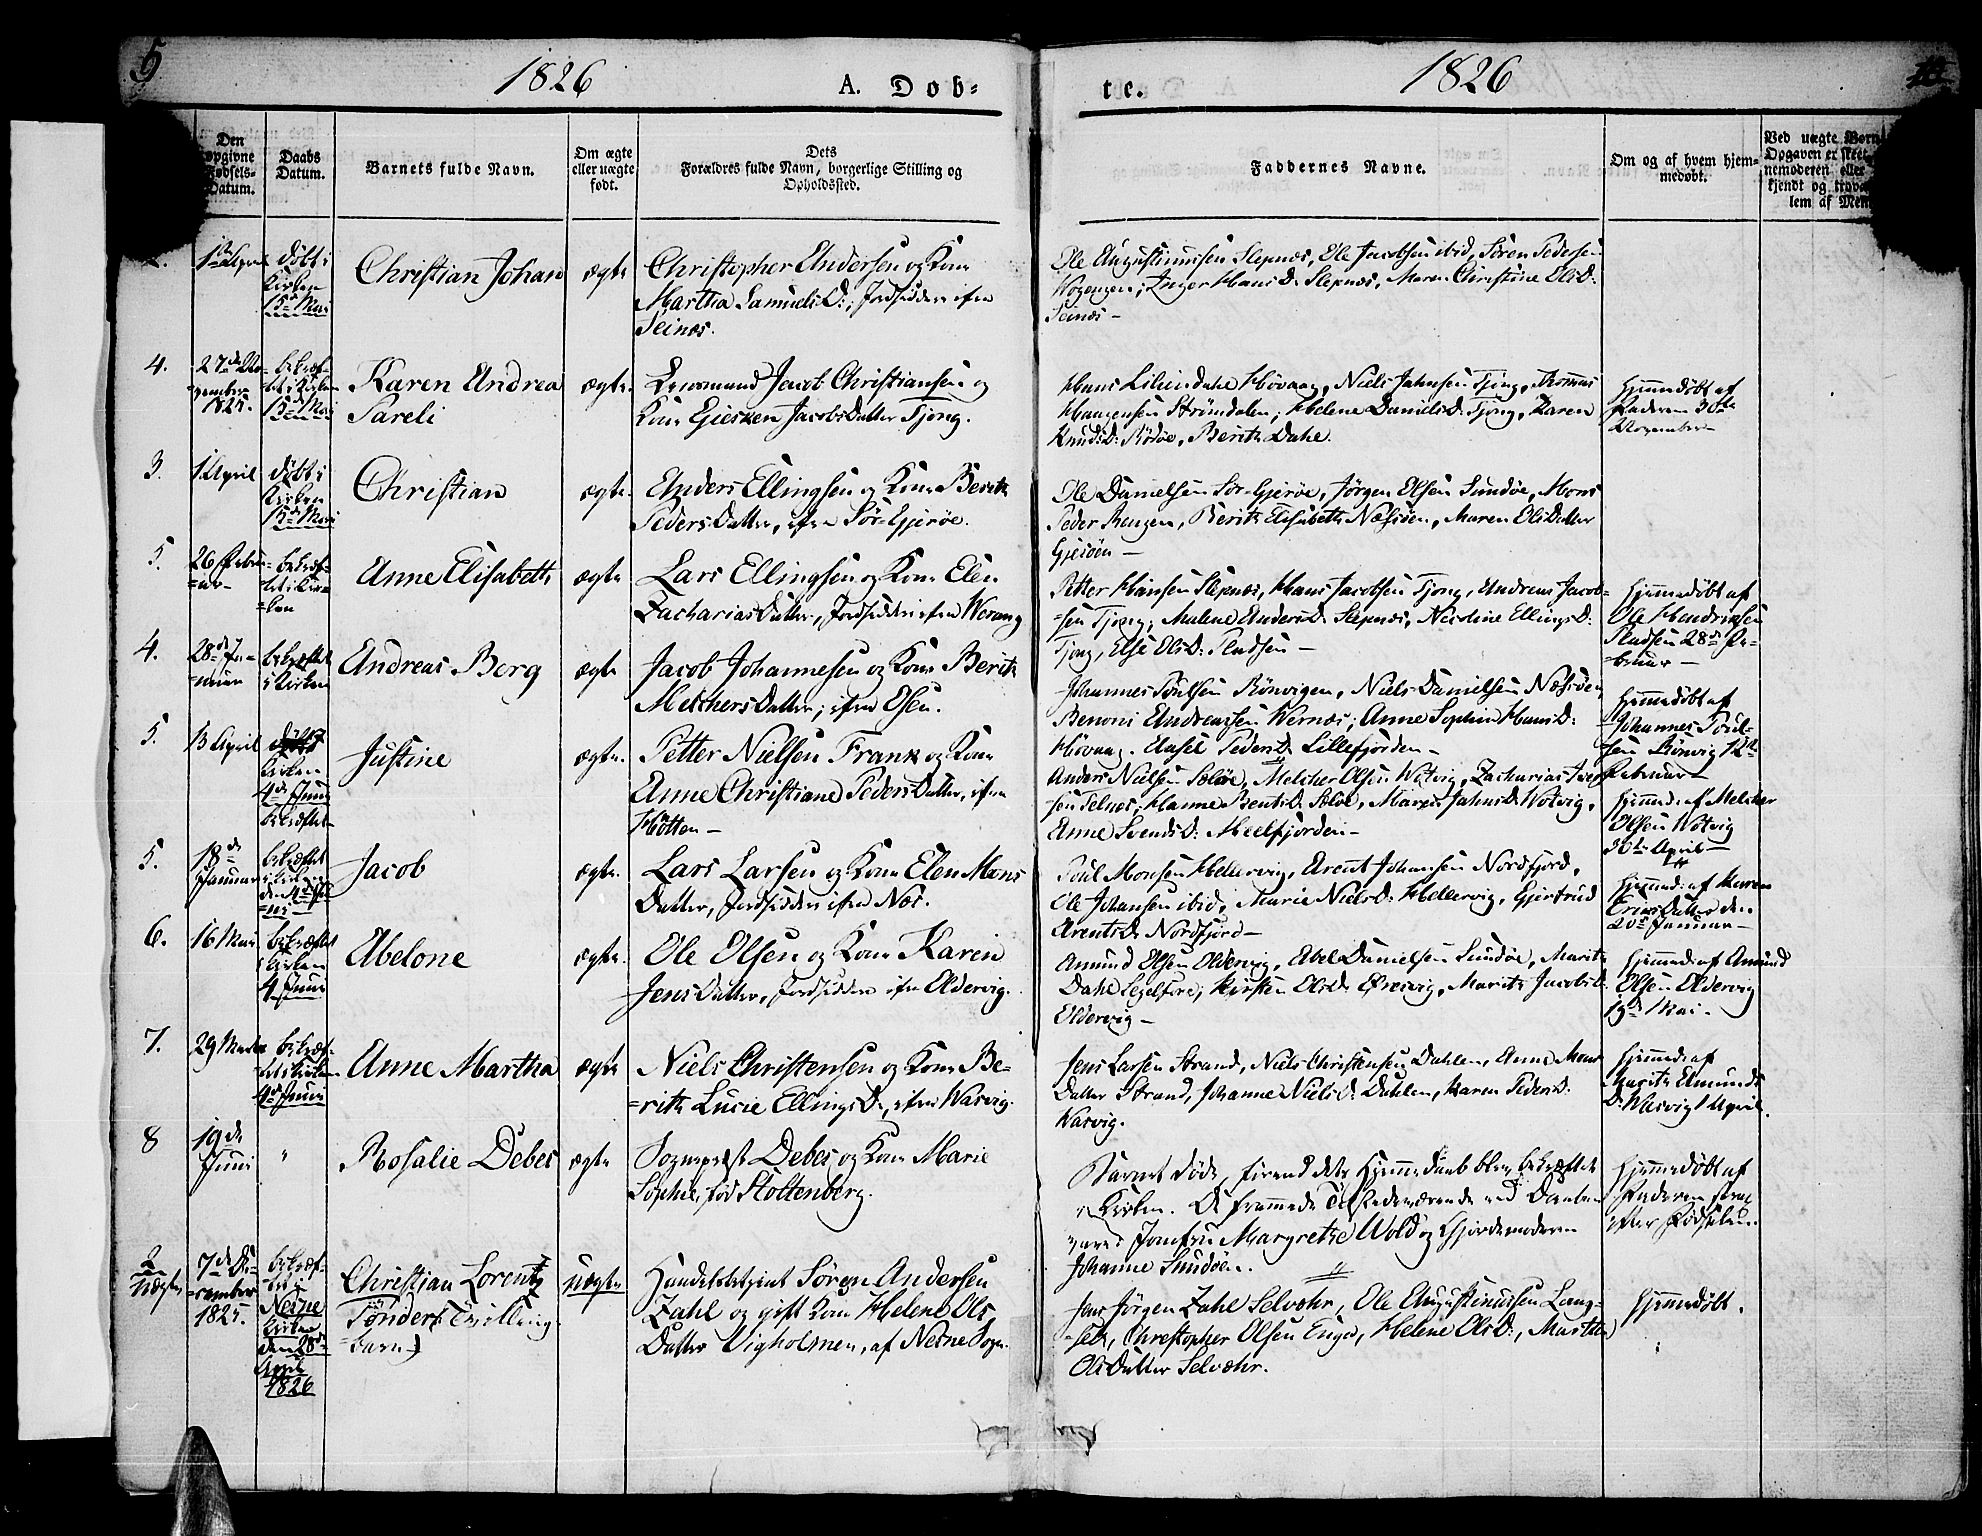 5
1826
A. Døb-
te.
1826
Den
opgivne
Fødsels-
Datum.
Daabs
Datum.
Barnets fulde Navn.
Om ægte
eller uægte
født.
Dets
Forældres fulde Navn, borgerlige Stilling og
Opholdssted.
Faddernes Navne.
Om og af hvem hjem-
medøbt.
Ved uægte Børn
Opgaven er skeet
nemoderen eller
kjendt og trova
lem af Men
døbt i
Kirken
15de Mai
Christian Johan
ægte
Christopher Andersen og Kone
Martha SamuelsD:, Jordsidder ifra
Seines.
Ole Augustinusen Slepnes, Ole Jacobsen ibid, Sören Pedersen
Inger HansD: Slepnes, Maren Christine OlsD:
Seines –
4.
27de No-
vember
1825.
bekræf-
tet i Kirken
15de Mai
Karen Andrea
Sareli
ægte.
Lensmand Jacob Christiansen og
Kone Giesken JacobsDatter Tjong.
Hans Liliendahl Hövaag, Niels Jahnsen Tjong, Thomas
Haagensen Strömdalen, Helene DanielsD: Tjong, Karen
KnudsD: Rödöe, Berith Dahl.
Hjemmedöbt af
Faderen 30te
November –
3.
1 April
döbt i
Kirken
15de Mai
Christian
ægte.
Anders Ellingsen og Kone Berith
PedersDatter, ifra Sör-Gjeröe.
Ole Danielsen Sör-Gjeröe, Jörgen Olsen Sundöe, Mons
Peder Rengen, Berith Elisabeth Næsöen, Maren OlsDatter
Gjesöen –
5.
26 Febru-
ar
bekræf-
tet i Kir-
ken
Anne Elisabeth
ægte
Lars Ellingsen og Kone Elen
ZachariasDatter, Jordsidder ifra Werang
Petter Hansen Slepnes, Hans Jacobsen Tjong, Andreas Jacob-
sen Tjong, Malene AndersD: Slepnes, Nicoline EllingsD:
Tjong, Else OlsD: Pladsen –
Hjemmedöbt af
Ole Hendriksen
Pladsen 28de Fe-
bruar –
4.
28de Ja-
nuar
bekræftet
i Kirken
Andreas Berg
ægte
Jacob Johannesen og Kone Berith
MelchersDatter, ifra Esen.
Johannes Poulsen Rönvigen, Niels Danielsen Næsöen,
Benoni Andreasen Wernes, Anne Sophie HansD:
Hövaag, Aasel PedersD: Lillefjorden –
Hjemmedöbt af
Johannes Poul-
sen Rönvig 12te
Februar
5.
13 April
Kirken
4de Juni
bekræftet
Justine
ægte.
Petter Nielsen Frank og Kone
Anne Christiane PedersDatter, ifra
Hötten –
Anders Nielsen Selöe, Melcher Olsen Wotvig, Zacharias Iver-
sen Telnes, Hanne BentsD: Selöe, Maren JahnsD: Wotvig,
Anne SvendsD: Meelfjorden –
Hjemmed: af Melcher
Olsen Wotvig
30te April –
5.
18de
Januar
bekræftet
i Kirken
den 4de Ju-
ni
Jacob
ægte.
Lars Larsen og Kone Elen Mons
Datter, Jordsidder ifra Nes.
Poul Monsen Hellervig, Arent Johansen Nordfjord,
Ole Johansen ibid, Marie NielsD: Hellervig, Gjertrud
ArentsD: Nordfjord –
Hjemmed: af Karen
EricsDatter den
20de Januar –
6.
16 Mai
bekræftet
i Kirken
4 Juni
Abelone
ægte.
Ole Olsen og Kone Karen
JensDatter, Jordsidder ifra Oldervig.
Amund Olsen Oldervig, Abel Danielsen Sundöe, Marit
Dahl Segelfore, Kirsten OlsD: Esvig, Marith JacobsD:
Oldervig –
Hjemmed: af Amund
Olsen Oldervig
19de Mai.
7.
29 Marts
bekræf-
tet i Kirken
4de Juni
Anne Martha
ægte
Niels Christensen og Kone Be-
rith Lucie EllingsD:, ifra Warvig.
Jens Larsen Strand, Niels Christensen Dahlen, Anne Mons
Datter Strand, Johanne NielsD: Dahlen, Karen PedersD:
Warvig.
Hjemmed: af
Marith Amunds
D: Warvig 1 April.
8
19de
Juni
"
Rosalie Debes
ægte
Sogneprest Debes og Kone Marie
Sophie, fød Stoltenberg.
Barnet döde, förend dets Hjemmedaab blev bekræftet
i Kirken. De fremmede Tilstedeværende ved Daaben
vare: Jomfru Margrethe Wold og Gjordemoderen
Johanne Sundöen.
Hjemmedöbt af
Faderen strax
efter Födselen.
2
Uægte
7de De-
cember
1825.
bekræf-
tet i
Nesne
Kirken
den 8de
April
1826
Christian Lorentz
Tönder (Tvilling-
barn)
uægte
Handelsbetjent Sören Andersen
Zahl og gift Kone Helene Ols
Datter Vigholmen, af Nesne Sogn.
Jens Jörgen Zahl Selvær, Ole Augustinusen Lang-
set, Christopher Olsen Enga, Helene OlsD:, Martha
OlsDatter Selvær.
Hjemmedöbt.